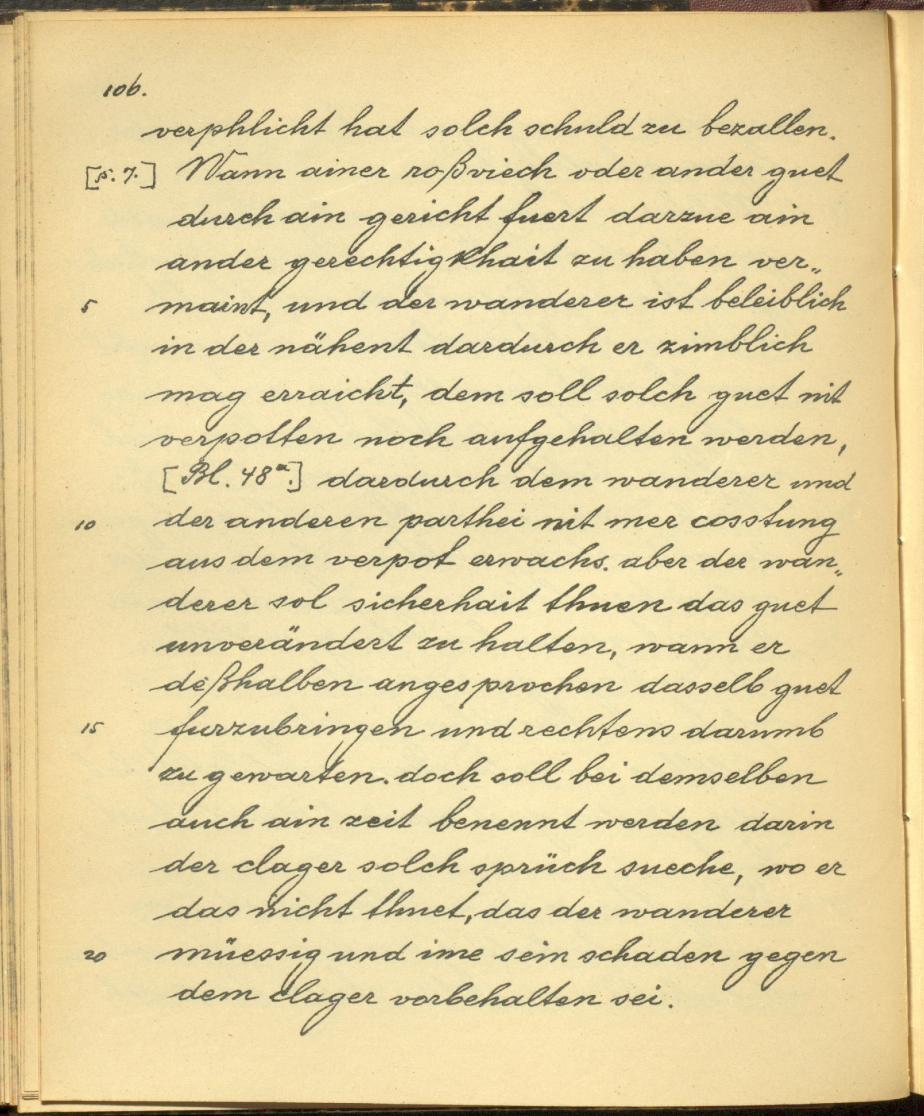 106.
verphlicht hat solch schuld zu bezallen.
[S. 7.] Wann ainer roßviech oder ander guet
durch ain gericht fuert darzue ain
ander gerechtigkhait zu haben ver„
5 maint, und der wanderer ist beleiblich
in der nähent dardurch er zimblich
mag erraicht, dem soll solch guet nit
verpotten noch aufgehalten werden,
[Bl. 48ᵃ.] dardurch dem wanderer und
10 der anderen parthei nit mer cosstung
aus dem verpot erwachs. aber der wan„
derer sol sicherhait thuen das guet
unverändert zu halten, wann er
deßhalben angesprochen dasselb guet
15 furzubringen und rechtens darumb
zu gewarten. doch soll bei demselben
auch ain zeit benennt werden darin
der clager solch sprüch sueche, wo er
das nicht thuet, das der wanderer
20 müessig und ime sein schaden gegen
dem clager vorbehalten sei.